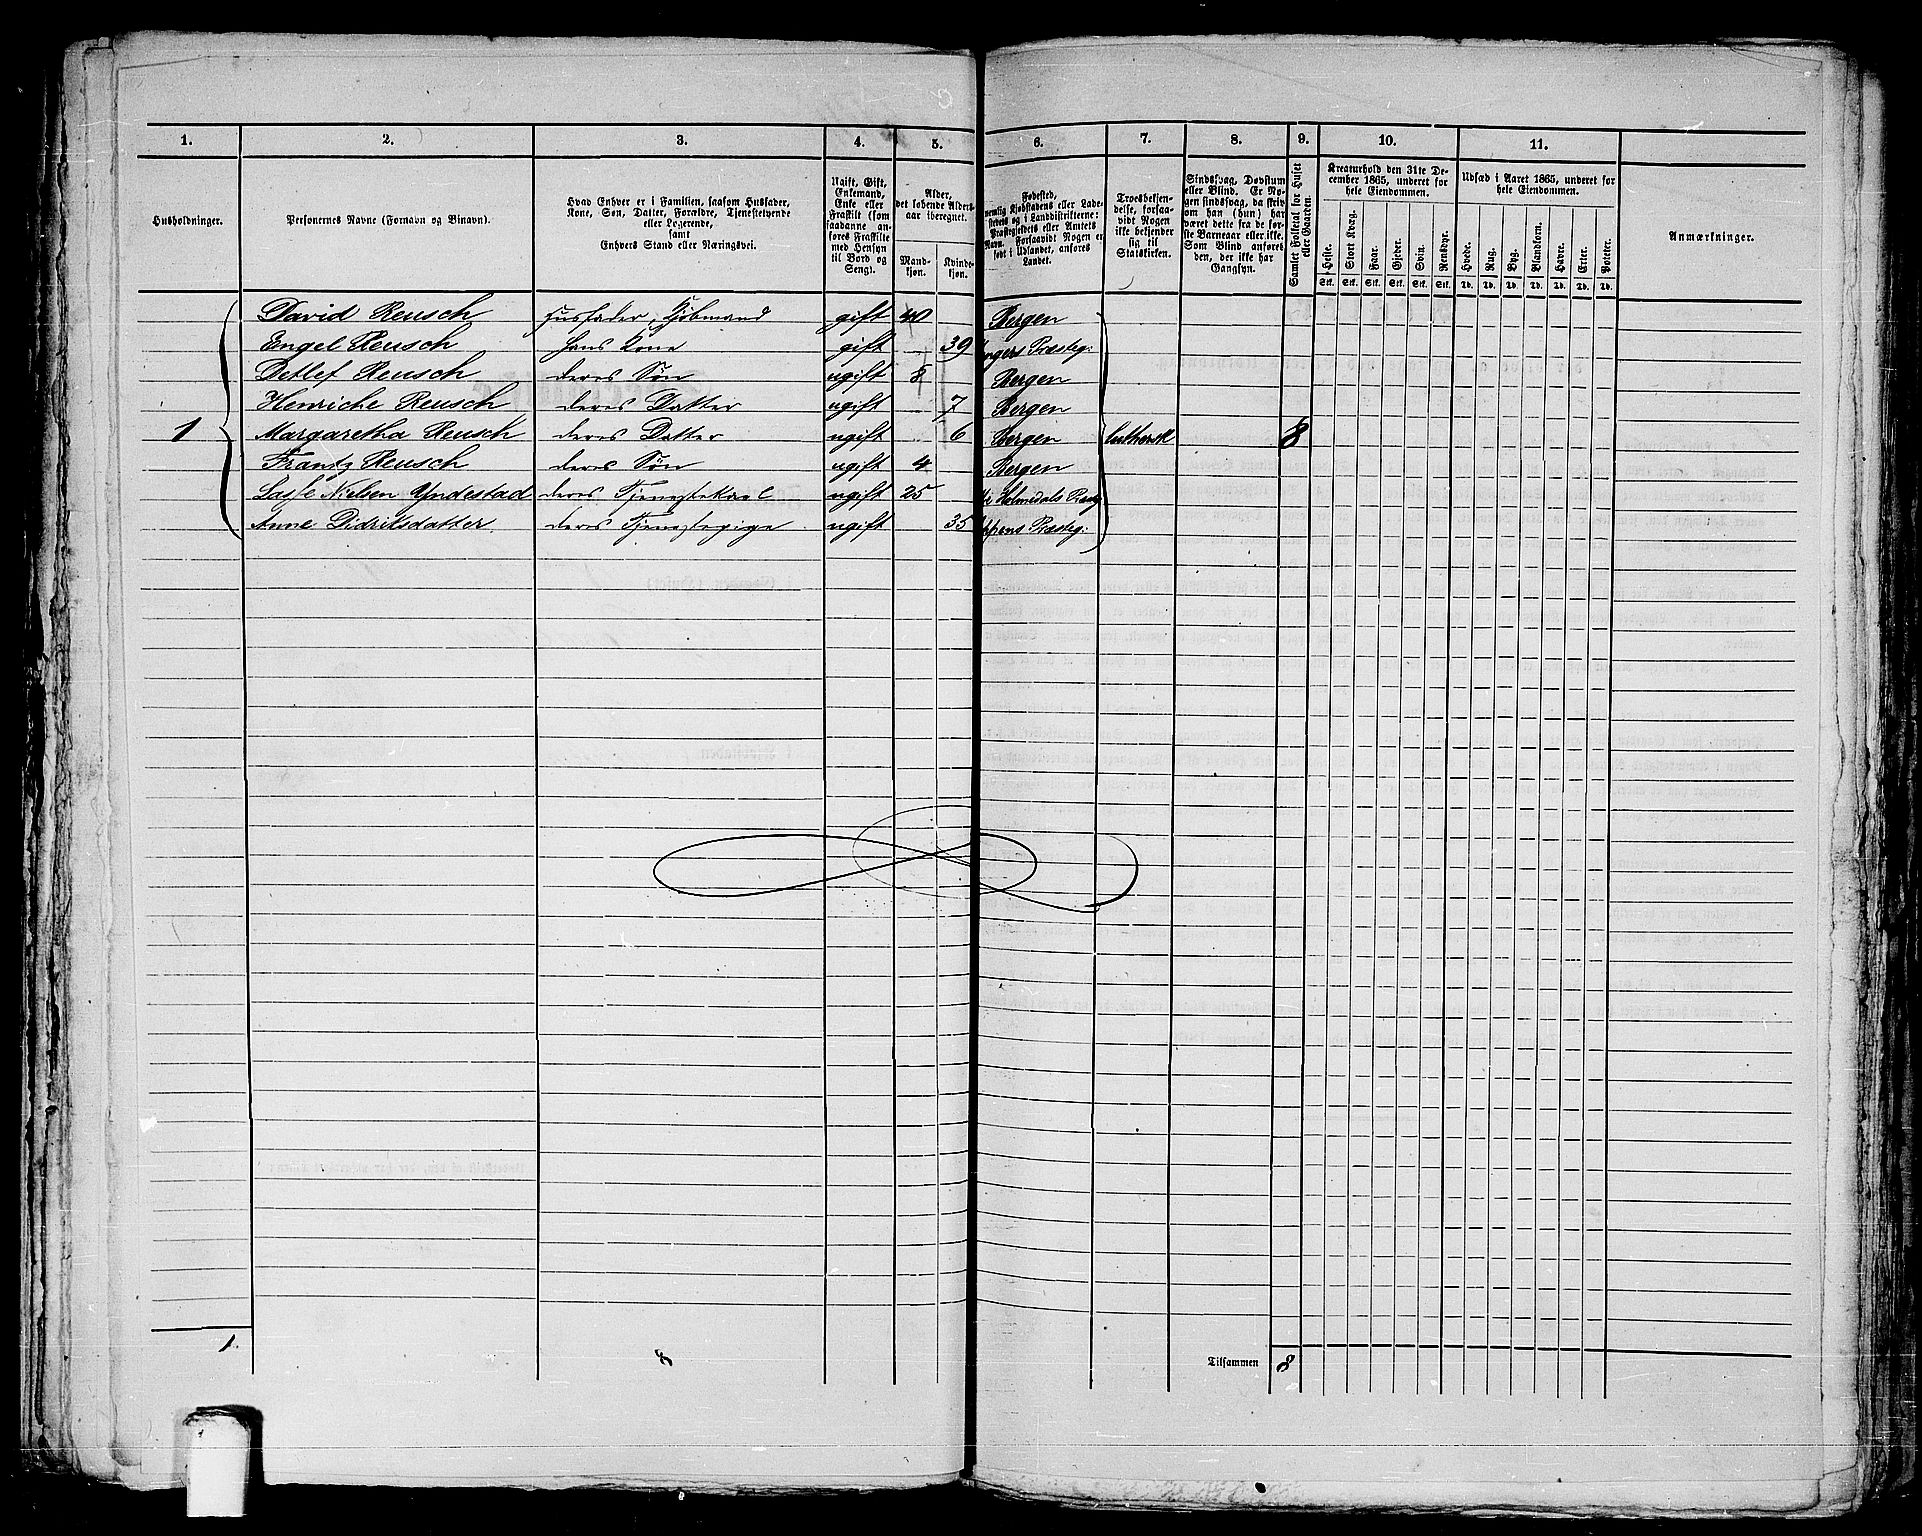 1. 2. 3. 4. 5. 6. 7. 8. 9. 10. 11.
Husholdninger.
Personernes Navne (Fornavn og Binavn).
Hvad Enhver er i Familien, saasom Husfader,
Kone, Søn, Datter, Forældre, Tjenestetyende
eller Logerende,
samt
Enhvers Stand eller Næringsvei.
Ugift, Gift,
Enkemand,
Enke eller
Fraskilt (som
saadanne an-
føres Fraskilte
med Hensyn
til Bord og
Seng).
Alder,
det løbende Alders-
aar iberegnet.
Mand-
kjøn.
Kvinde-
kjøn.
Fødested,
nemlig Kjøbstadens eller Lade-
stedets og i Landdistrikterne:
Præstegjeldets eller Amtets
Navn. Forsaavidt Nogen er
født i Udlandet, anføres
Landet.
Troesbekjen-
delse, forsaa-
vidt Nogen
ikke bekjender
sig til
Statskirken.
Sindssvag, Døvstum
eller Blind. Er No-
gen sindssvag, da skriv
om han (hun) har
været dette fra de før-
ste Barneaar eller ikke.
Som Blind anføres
den, der ikke har
Gangsyn.
Samlet Folketal for Huset
eller Gaarden.
Kreaturhold den 31te De-
cember 1865, underet for
hele Eiendommen.
Heste. Stort Kvæg. Faar. Gjeder. Svin. Rensdyr.
Stk. Stk. Stk. Stk. Stk. Stk.
Udsæd i Aaret 1865, underet for
hele Eiendommen.
Hvede. Rug. Byg. Blandkorn. Havre. Erter. Poteter.
Td. Td. Td. Td. Td. Td. Td.
Anmærkninger.
David Reusch Husfader, Kjøbmand gift 40 Bergen
Engel Reusch Hans Kone gift 39 Præsteg:
Detlef Reusch deres Søn ugift 8 Bergen
Henriche Reusch deres Datter ugift 7 Bergen
1 Margaretha Reusch deres Datter ugift 6 Bergen luthersk 8
Frantz Reusch deres Søn ugift 4 Bergen
Lasse Nielsen Yndestad deres Tjenestekarl ugift 25 Holmedals Præstg
Anne Didriksdatter deres Tjenestepige ugift 35 Præsteg:
1. 8 Tilsammen 8